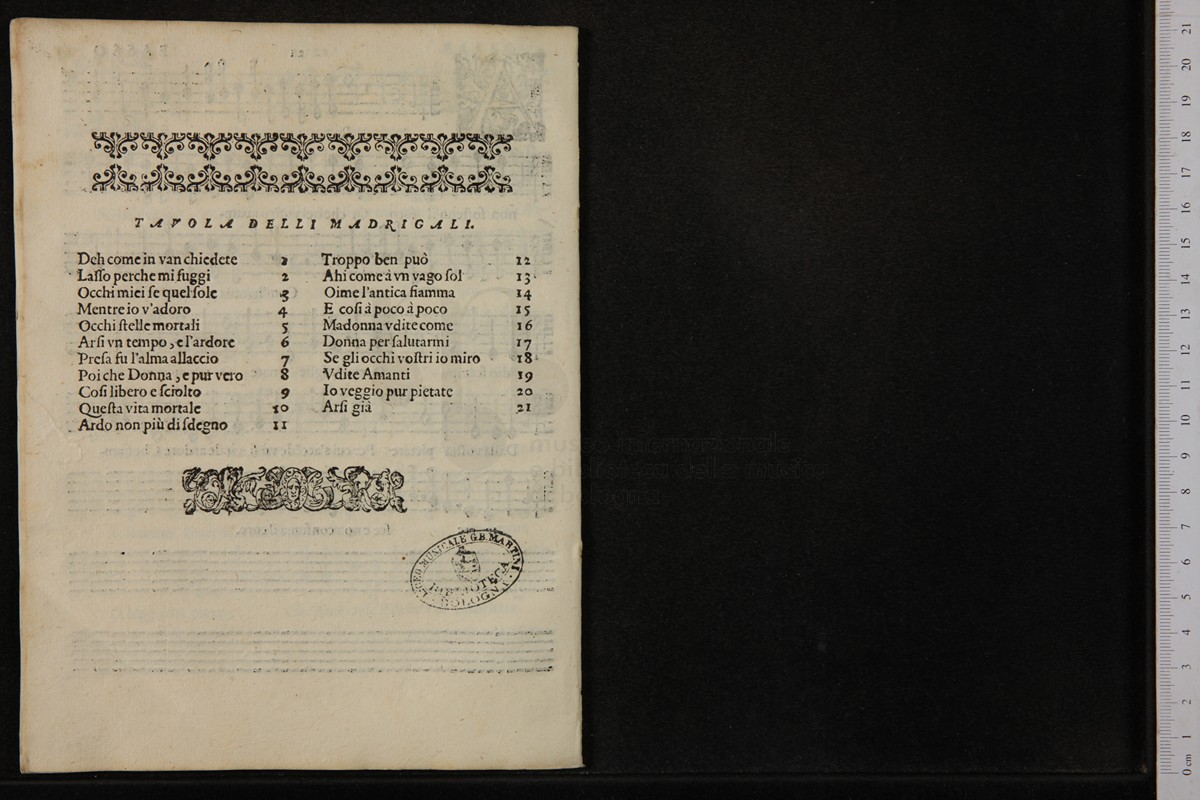 TAVOLA DELLI MADRIGALI.
Deh come in van chiedete 1
Laſſo perche mi fuggi 2
Occhi miei ſe quel ſole 3
Mentre io v'adoro 4
Occhi ſtelle mortali 5
Arſi vn tempo, e l'ardore 6
Preſa fu l'alma allaccio 7
Poi che Donna, e pur vero 8
Coſi libero e ſciolto 9
Queſta vita mortale 10
Ardo non più di ſdegno 11
Troppo ben può 12
Ahi come à vn vago ſol 13
Oime l'antica fiamma 14
E coſi à poco à poco 15
Madonna vdite come 16
Donna per ſalutarmi 17
Se gli occhi voſtri io miro 18
Vdite Amanti 19
Io veggio pur pietate 20
Arſi già 21
LICEO MUSICALE G.B. MARTINI
BIBLIOTECA
BOLOGNA
museo internazionale
e biblioteca della musica
di bologna
0 cm 1 2 3 4 5 6 7 8 9 10 11 12 13 14 15 16 17 18 19 20 21